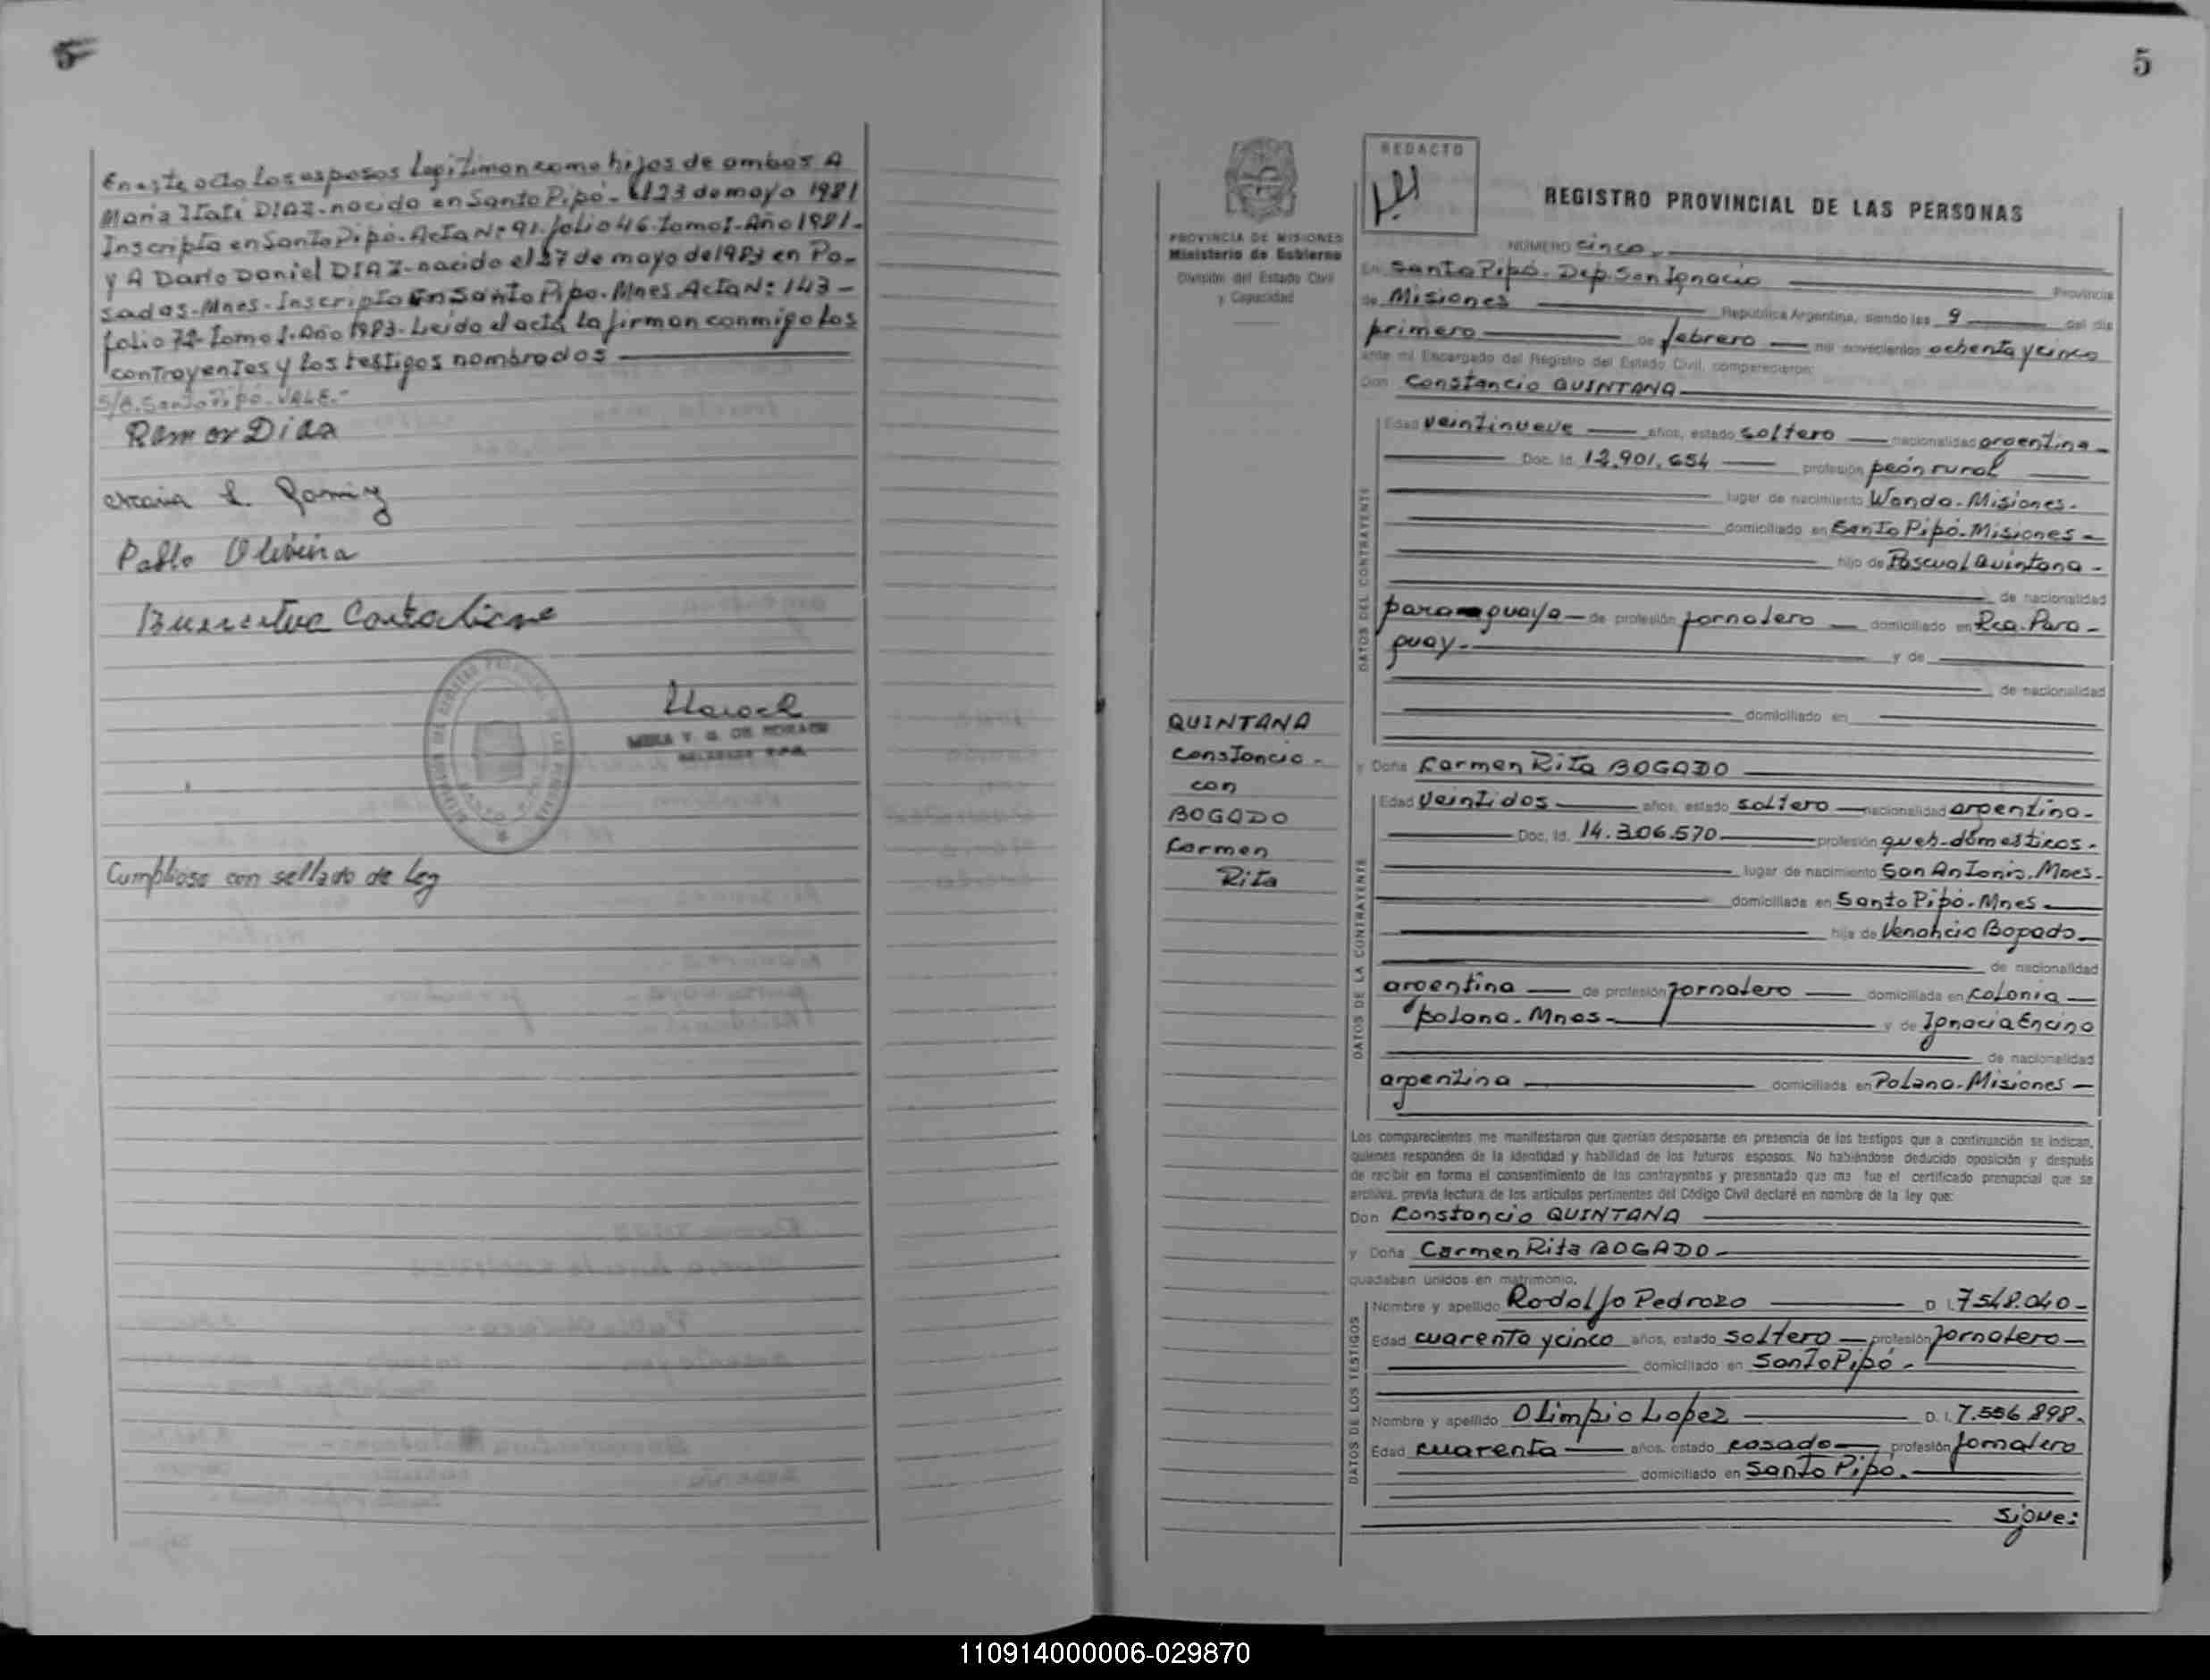 5
En este acto los esposos legitiman como hijos de ambos A
Maria Itati DIAZ - nacida en Santo Pipó - el 23 de mayo 1981
Inscripta en Santo Pipó - Acta Nº 91. folio 46 - tomo I - Año 1981 -
y A Dario Daniel DIAZ - nacido el 27 de mayo de 1983 en Po-
sadas - Mnes - Inscripto en Santo Pipo. Mnes. Acta Nº: 143 -
folio 72 - tomo I - Año 1983 - Leída el acta la firman conmigo los
contrayentes y los testigos nombrados
S/B. Santo Pipó - VALE. -
Ramon Diaz
Pablo Olivera
Cumplióse con sellado de Ley
5
PROVINCIA DE MISIONES
Ministerio de Gobierno
División del Estado Civil
y Capacidad
QUINTANA
Constancio -
con
BOGADO
Carmen
Rita
REDACTO
REGISTRO PROVINCIAL DE LAS PERSONAS
NUMERO cinco
En Santo Pipó - Dep. San Ignacio Provincia
de Misiones República Argentina, siendo las 9 del día
primero de febrero mil novecientos ochenta y cinco
ante mí Encargado del Registro del Estado Civil, comparecieron:
Don Constancio QUINTANA
DATOS DEL CONTRAYENTE
Edad veintinueve años, estado soltero nacionalidad argentina
Doc. Id. 12.901.654 profesión peón rural
lugar de nacimiento Wanda - Misiones -
domiciliado en Santo Pipó - Misiones -
hijo de Pascual Quintana -
de nacionalidad
paraguaya - de profesión jornalero domiciliado en Rca. Para -
guay. - y de
de nacionalidad
domiciliado en
y Doña Carmen Rita BOGADO
DATOS DE LA CONTRAYENTE
Edad veintidos años, estado soltera nacionalidad argentina -
Doc. Id. 14.306.570 profesión queh - domésticos -
lugar de nacimiento San Antonio - Mnes -
domiciliada en Santo Pipó - Mnes
hija de Venancio Bogado
de nacionalidad
argentina de profesión jornalero domiciliada en Colonia
polana - Mnes - y de Ignacia Encina
de nacionalidad
argentina domiciliada en Polana - Misiones -
Los comparecientes me manifestaron que querían desposarse en presencia de los testigos que a continuación se indican,
quienes responden de la identidad y habilidad de los futuros esposos. No habiéndose deducido oposición y después
de recibir en forma el consentimiento de los contrayentes y presentado que me fue el certificado prenupcial que se
archiva, previa lectura de los artículos pertinentes del Código Civil declaré en nombre de la ley que:
Don Constancio QUINTANA
y Doña Carmen Rita BOGADO -
quedaban unidos en matrimonio.
DATOS DE LOS TESTIGOS
Nombre y apellido Rodolfo Pedrozo D. I. 7548.040 -
Edad cuarenta y cinco años, estado soltero profesión jornalero
domiciliado en Santo Pipó -
Nombre y apellido Olimpio Lopez D. I. 7.556.898.
Edad cuarenta años, estado casado profesión jornalero
domiciliado en Santo Pipó.
sigue:
110914000006-029870